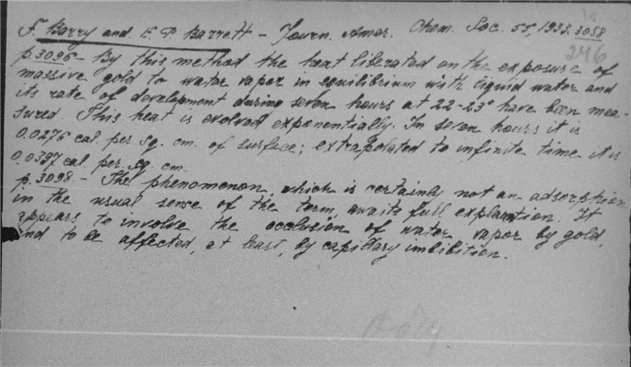 F. Barry and E. P. Barrett - Journ. Amer. Chem. Soc. 55, 1933. 3088
246
p. 3096 - By this method the heat liberated on the exposure of
massive gold to water vapor in equilibrium with liquid water and
its rate of development during seven hours at 22-23° have been mea-
sured. This heat is evolved exponentially. In seven hours it is
0.0276 cal. per sq. cm. of surface; extrapolated to infinite time it is
0.0397 cal. per sq. cm.
p. 3098 - The phenomenon, which is certainly not an adsorption
in the usual sense of the term, awaits full explanation. It
appears to involve the occlusion of water vapor by gold,
and to be affected, at least, by capillary imbibition.